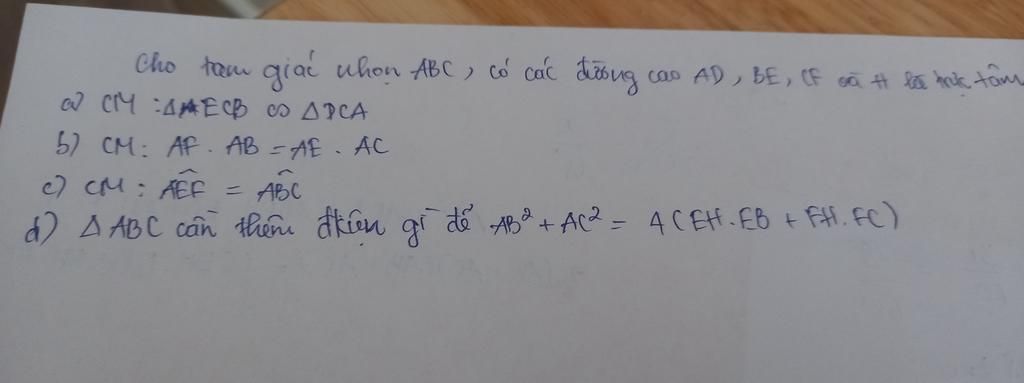 Cho tam giác nhọn ABC, có các đường cao AD, BE, CF và H là trực tâm
a) CM : ΔECB ∽ ΔDCA
b) CM : AF . AB = AE . AC
c) CM : \widehat{AEF} = \widehat{ABC}
d) Δ ABC cần thêm đkiện gì để AB² + AC² = 4(EH.EB + FH.FC)